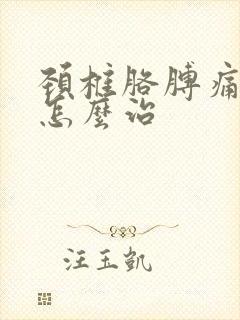 頚椎胳膊痛
怎麼治
汪玉凱